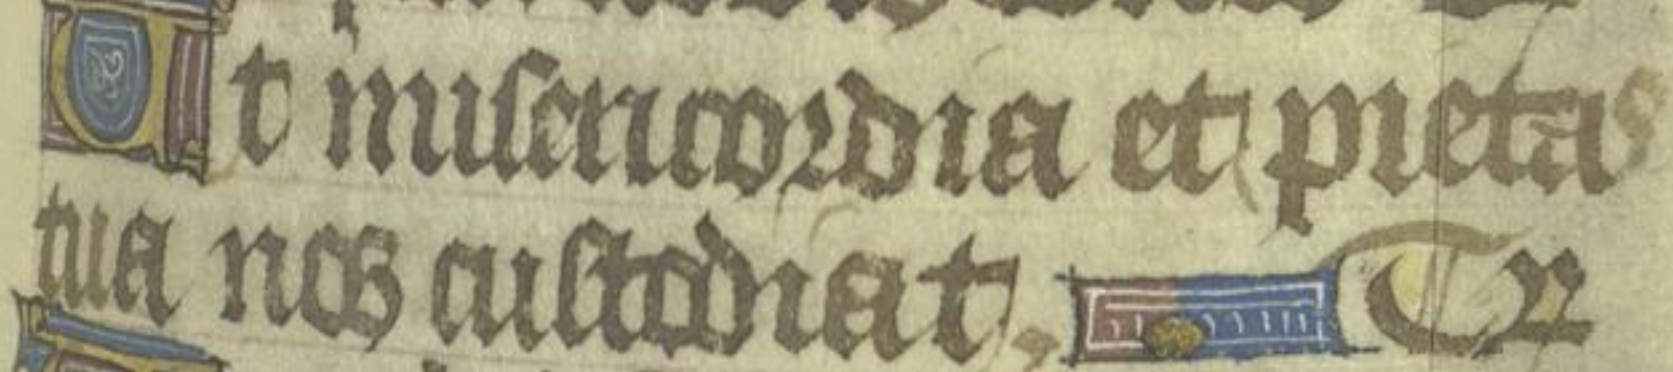 Ut misericordia et pietas
tua nos custodiat. Tr